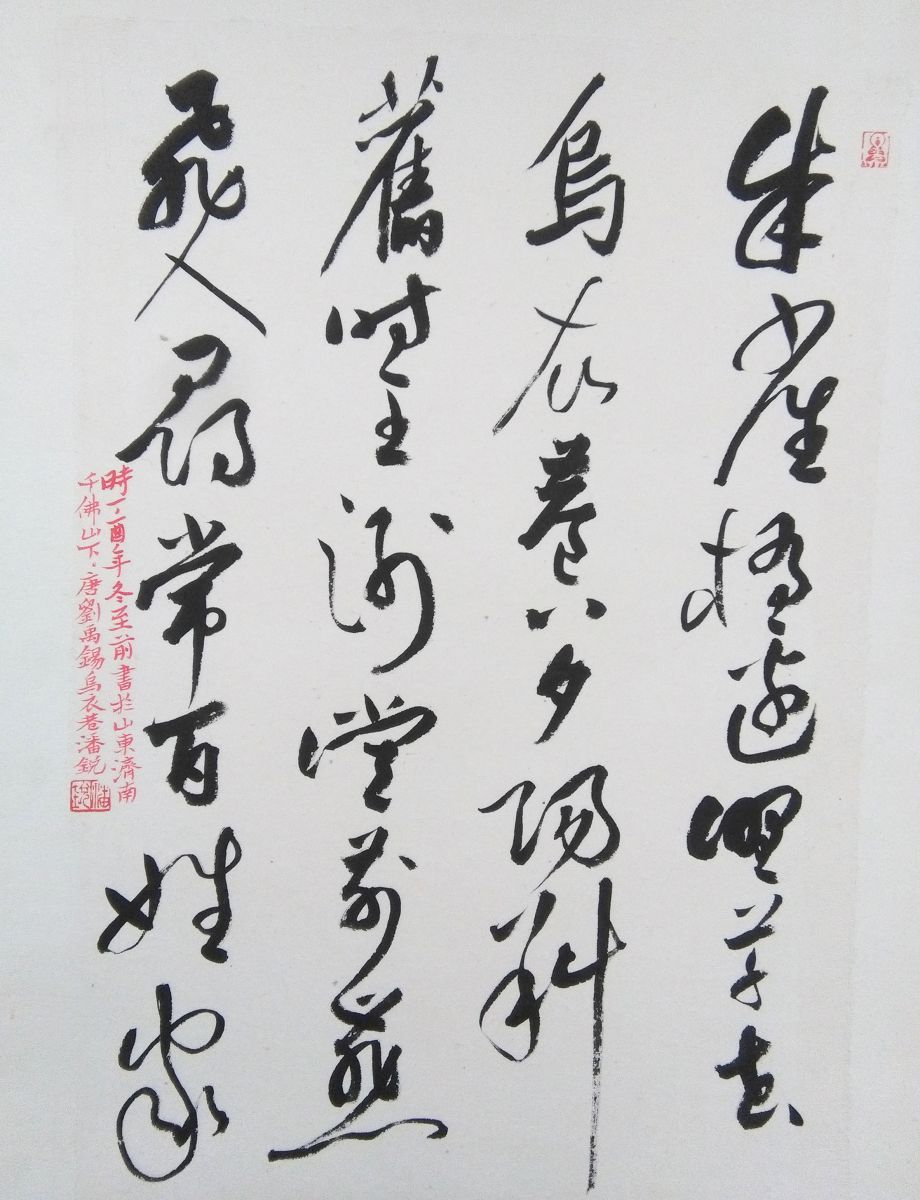 朱雀橋邊野草花
烏衣巷口夕陽斜
舊時王謝堂前燕
飛入尋常百姓家
時丁酉年冬至前書於山東濟南
千佛山下、唐劉禹錫烏衣巷潘銳